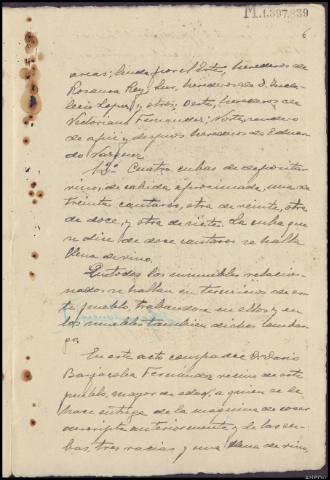 M.1.397.839
6
areas; linda por el Este, herederos de
Rosaura Rey; Sur, herederos de D.
Lopez y otros; Oeste, herederos de
Victoriano Fernandez; Norte, sendero
de a pié y despues herederos de Eduar
do Vazquez.
Cuatro cubas de depositar
vino, de cabida aproximada, una de
treinta cantaros, otra de veinte, otra
de doce, y otra de siete. La cuba que
se dice de doce cantaros se halla
llena de vino.
Que todos los inmuebles relacio-
nados se hallan en terminos de es
te pueblo, trabandose en ellos y en
los muebles tambien dicho embar
go.
En este acto comparece D. Dario
Barjacoba Fernandez vecino de este
pueblo, mayor de edad, a quien se le
hace entrega de la maquina de coser
descripta anteriormente y de las cu-
bas, tres vacias y una llena de vino,